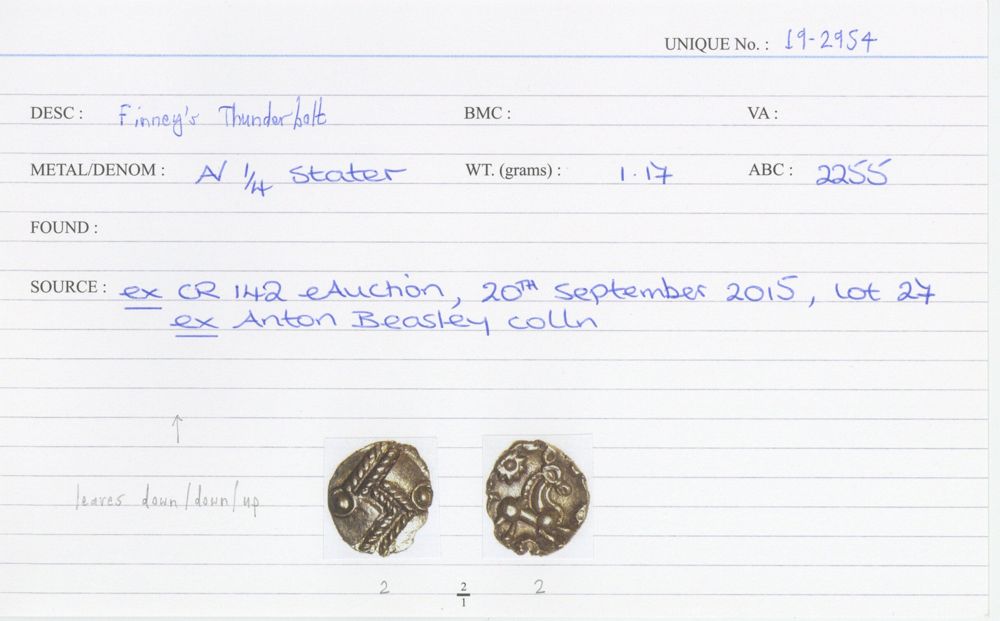 UNIQUE No. : 19-2954
DESC : Finney's Thunderbolt BMC : VA :
METAL/DENOM : A/ 1/4 Stater WT. (grams) : 1.17 ABC : 2255
FOUND :
SOURCE : ex CR 142 eAuction, 20TH September 2015, lot 27
ex Anton Beasley colln
↑
leaves down/down/up
2 2/1 2